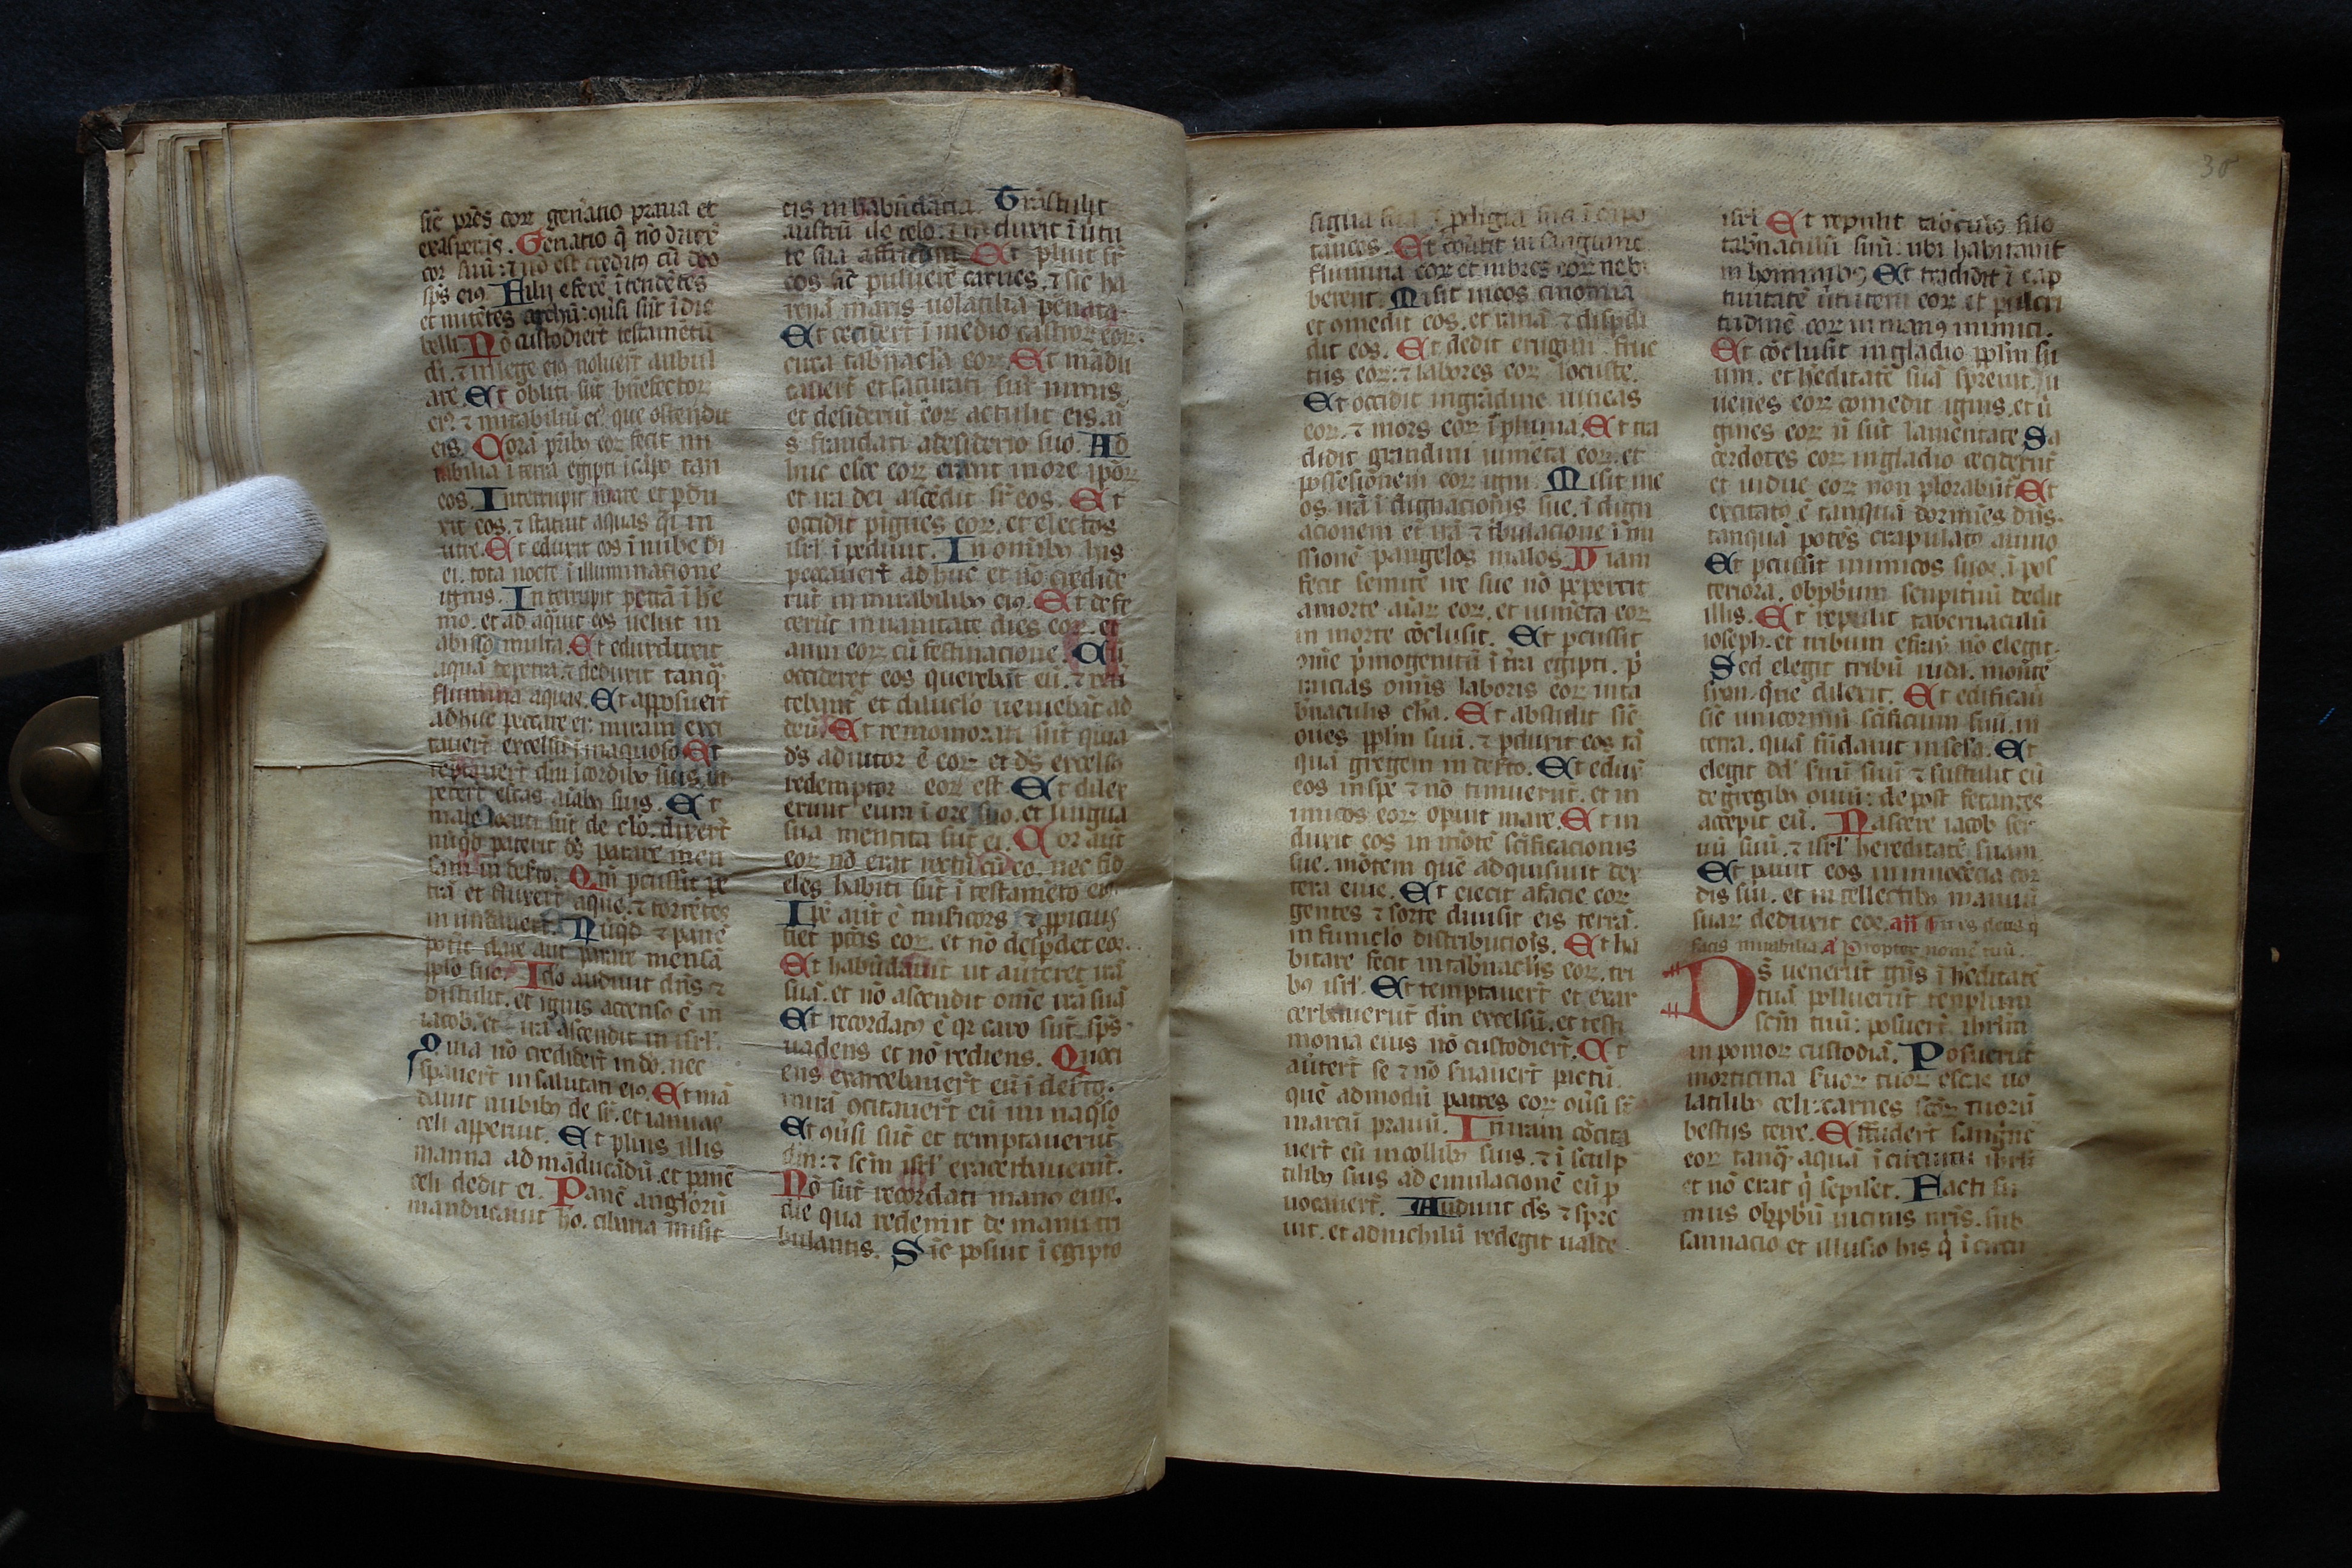 sic̄ pr̄es coꝝ gen̄atio praua et
exasperās. Generatio q̄ nō direx̄
cor suū: ⁊ nō est creditꝯ cū deo
sp̄s eiꝯ Filii efrē ītendētes
et mitētes archū: ꝯūsi sūt ī die
belli. Nō custodiert̄ testamētū
di. ⁊ in lege eiꝯ noluert̄ ambul
are. Et obliti sūt bn̄efactoꝝ
eiꝰ ⁊ mirabiliū eiꝰ que ostendit
eis. Corā pr̄ibꝯ coꝝ fecit mi
rabilia ī terra egipti ī cāpo tan
eos. Interrupit mare et ꝑdu
xit eos. ⁊ statuit aquas q̄i in
utre. Et eduxit eos ī nube di
ei. tota nocte ī illuminatione
ignis. Interrupit petrā ī he
mo. et ad aq̄uit eos uelut in
abisso multa. Et eduxduxit
aquā de petra. ⁊ deduxit tanq̄
flumina aquas. Et apposuert̄
adhuc peccare ei: in iram exci
tauert̄ excelsū ī inaquoso Et
tēptauert̄ dm̄ ī cordibꝯ suis. ut
peterēt escas aīabꝯ suis. Et
male locuti sūt de do. dixert̄
nūqd̄ paterit ds̄ parare men
sam in deserto. Qm̄ percussit pe
trā et fluxert̄ aque. ⁊ torrētes
inundauert̄. Nūqd̄ ⁊ panē
potīt dare aut parare mensā
pplo suo. Ido audiuit dn̄s ⁊
distulit. et ignis accensꝰ ē in
iacob. et irā ascendit in isrl̄.
Quia nō crediderūt in do. nec
spauert̄ in salutari eiꝯ. Et mā
dauit nubibꝯ de sr̄. et ianuas
celi apperuit. Et pluit illis
manna ad māducādū. et panē
celi dedit ei. Panē angl̄orū
manducauit hō. cibaria misit
eis in habūdātia. Trāstulit
austrū de celo: ⁊ induxit ī uirtu
te sua affricum. Et pluit sr̄
eos sic̄ puluerē carnes. ⁊ sic̄ ha
renā maris uolatilia penata.
Et cecidert̄ ī medio castroꝝ eoꝝ.
circa tabn̄acla eoꝝ. Et mādu
cauert̄ et saturati sūt nimis
et desideriū eoꝝ actulit eis. nō
s̄ fraudati a desiderio suo. Ad
huc esce eoꝝ erant in ore ip̄oꝝ
et ira dei ascēdit sr̄ eos. Et
occidit pīgues eoꝝ. et electos
isrl̄. ī pediuit. In omībꝯ his
peccauert̄ adhuc et nō credide
rūt in mirabilibꝯ eiꝯ. Et defe
cerūt in uanitate dies eoꝝ. et
anni eoꝝ cū festinacione. Cū
occideret eos querebāt eū. ⁊ reū
tebant̄ et diluclo ueniebāt ad
deū. Et rememorati sūt quia
ds̄ adiutor ē eoꝝ et ds̄ excelsꝯ
redemptor eoꝝ est. Et dilex
erunt eum ī ore suo. et lingua
sua mentita sūt ei. Cor aūt
eoꝝ nō erat rectū cū eo. nec fid
eles habiti sūt ī testamēto eiꝰ
Ip̄e aūt ē miſicors ⁊ ꝓpiciꝯ
fiet pct̄is eoꝝ. et nō desp̄det eos.
Et habūdauit ut auteret irā
suā. et nō ascendit om̄ē irā suā
Et recordatꝯ ē qꝛ caro sūt. sp̄s
uadens et nō rediens. Quoci
ens exarcebauert̄ eū ī deserto.
in irā ꝯcitauert̄ eū in inaqso
Et ꝯūsi sūt et temptauerūt
dm̄: ⁊ sc̄m isrl̄ exacerbauerūt.
Nō sūt recordati manꝯ eius.
die qua redemit de manu tri
bulantis. Sic̄ posuit ī egipto
signa sua ⁊ ꝓdigia sua ī cāpo
taneos. Et cōūtit in sanguine
flumina eoꝝ et imbres eoꝝ ne bi
berent. Misit in eos cinomiā
et ꝯmedit eos. et ranā ⁊ disp̄di
dit eos. Et dedit erugini fruc
tus eoꝝ: ⁊ labores eoꝝ locuste.
Et occidit in grādine uineas
eoꝝ. ⁊ mors eoꝝ ī pluina. Et tra
didit grandini iumēta eoꝝ. et
possesionem eoꝝ igni. Misit in e
os. irā ī dignacionis sue. ī dign
acionem et irā ⁊ tribulacionē ī mi
ssionē ꝑ angelos malos. Viam
fecit semite ire sue nō peꝑercit
a morte aīaꝝ eoꝝ. et iumēta eoꝝ
in morte cōclusit. Et percussit
om̄e p̄mogenitū ī tr̄a egipti. p̄
micias om̄is laboris eoꝝ in ta
bn̄aculis cha. Et abstulit sic̄
oues pplm̄ suū. ⁊ ꝑduxit eos tā
quā gregem in deserto. Et edux
eos in spē ⁊ nō timuerūt. et in
imicos eoꝝ opiuit mare. Et in
duxit eos in mōtē sc̄ificacionis
sue. mōtem quē adquisiuit dex
tera eius. Et eiecit a facie eoꝝ
gentes ⁊ sorte diuisit eis terrā.
in funiclo distribucioīs. Et ha
bitare fecit in tabn̄aclis eoꝝ. tri
bꝯ isrl̄. Et temptauert̄ et exar
cerbauerūt dm̄ excelsū. et testi
monia eius nō custodiert̄. Et
auertert̄ se ⁊ nō ſuauert̄ pactū.
quē admodū patres eoꝝ ꝯūsi sr̄
in arcū prauū. In iram cōcita
uert̄ eū in collibꝯ suis. ⁊ ī sculp
tilibꝯ suis ad emulacionē eū ꝓ
uocauert̄. Audiuit ds̄ ⁊ spre
uit. et ad nichilū redegit ualde
isrl̄ Et repulit tab̄culū silo
tabn̄aculū suū: ubi habitauit
in hominibꝯ Et tradidit ī cap
tiuitatē uirtutem eoꝝ et pulcri
tudinē eoꝝ in manꝯ inimici.
Et cōclusit in gladio pplm̄ su
um. et hēditatē suā spreuit. Ju
uenes eoꝝ comedit ignis. et ū
gines eoꝝ nō sūt lamētate Sa
cerdotes eoꝝ in gladio ceciderūt
et uidue eoꝝ non plorabūt Et
excitatꝯ ē tanquā dormiēs dn̄s.
tanquā potēs crapulatꝯ auino
Et percussit inimicos suos. ī pos
teriora. obprobrium sempitnū dedit
illis. Et repulit tabernaculū
ioseph. et tribum efraȳ nō elegit.
Sed elegit tribū iuda. mōtē
sion. que dilexit. Et edificauit
sic̄ unicorniū sc̄ificium suū. in
terra. quā fūdauit in scl̄a. Et
elegit dd̄ seruū suū ⁊ sustulit eū
de gregibꝯ ouiū: de post fetantes
accepit eū. Nascere iacob ser
uū suū. ⁊ isrl̄ hereditatē suam.
Et pauit eos in innocēcia cor
dis sui. et in tellectibꝯ manuū
suaꝝ deduxit eos. añ Tu es deus q̄
facis mirabilia. a Propter nomē tuū.
Ds̄ uenerūt gn̄s ī hēditatē
tuā polluerūt templum
sc̄m tuū: posuert̄ ihrl̄m
in pomoꝝ custodiā. Posuerūt
morticina seruoꝝ tuoꝝ escas uo
latilibꝯ celi: carnes sc̄oꝝ tuorū
bestiis terre. Effudert̄ sanguinē
eoꝝ tanq̄ aquā ī circuitu ihrl̄m
et nō erat q̄ sepiret. Facti su
mus obprobriū uicinis nr̄is. sub
sannacio et illusio his q̄ ī circu
38